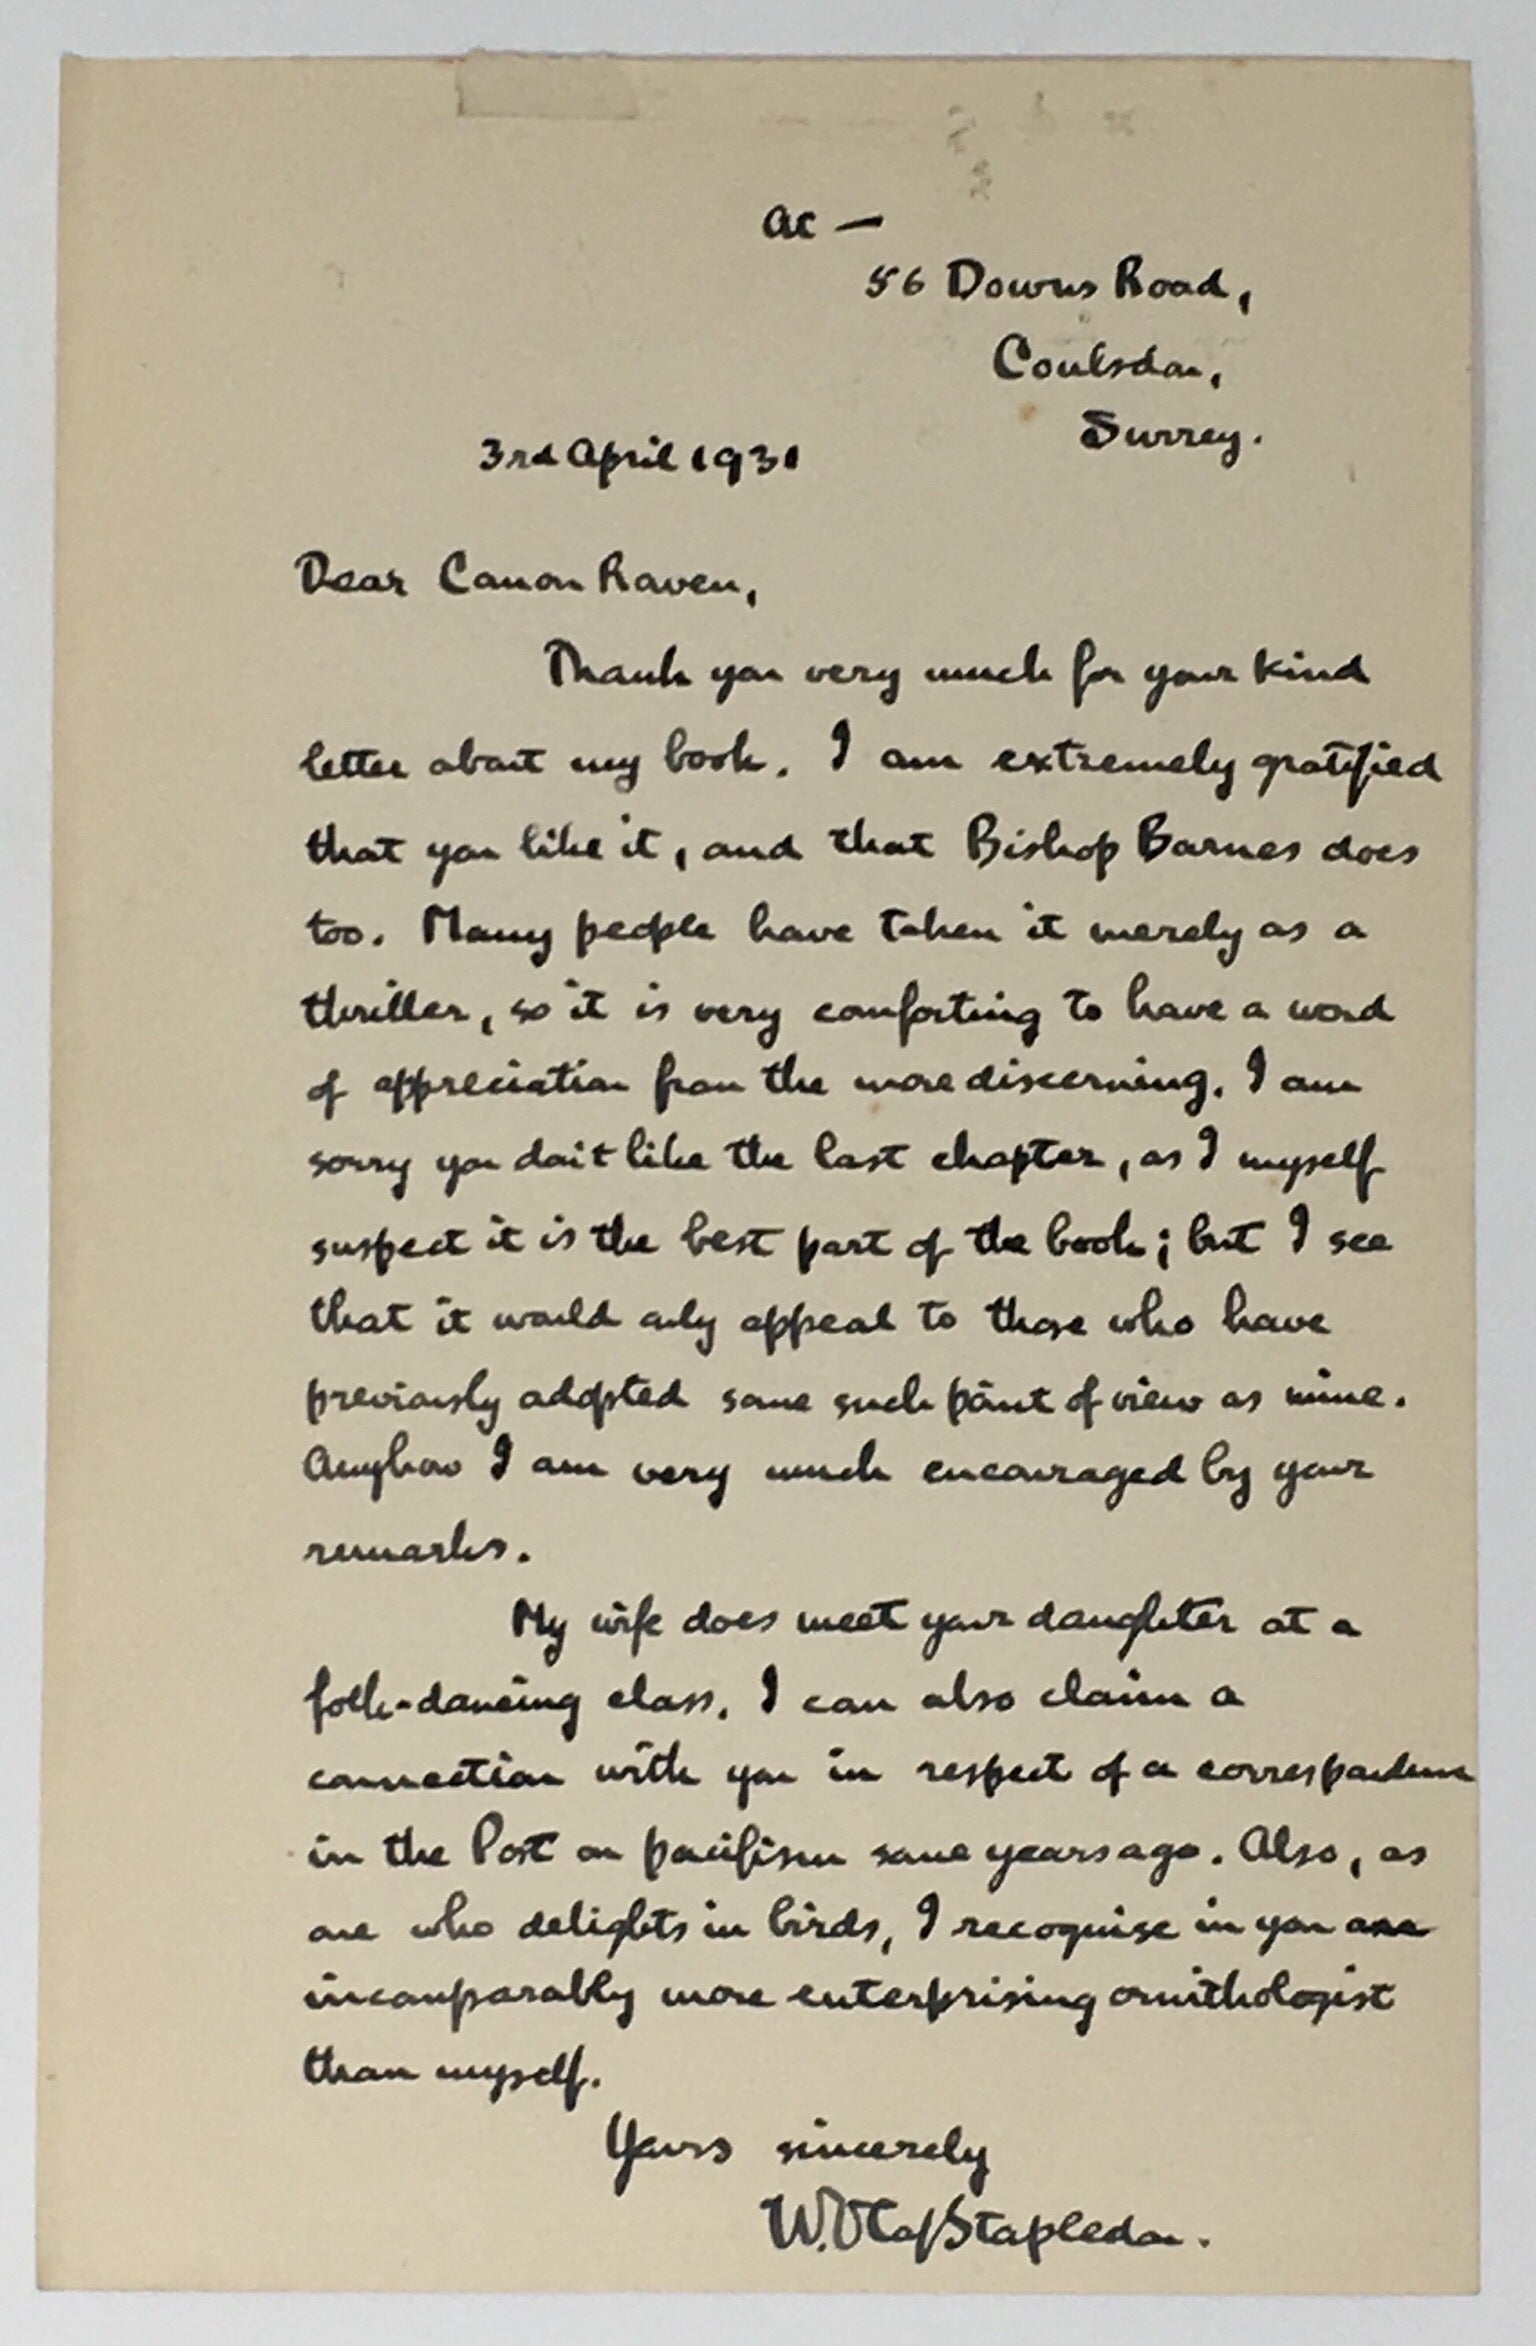 at —
56 Downs Road,
Coulsdon,
Surrey.
3rd April 1931
Dear Canon Raven,
Thank you very much for your kind
letter about my book. I am extremely gratified
that you like it, and that Bishop Barnes does
too. Many people have taken it merely as a
thriller, so it is very comforting to have a word
of appreciation from the more discerning. I am
sorry you don't like the last chapter, as I myself
suspect it is the best part of the book; but I see
that it would only appeal to those who have
previously adopted some such point of view as mine.
Anyhow I am very much encouraged by your
remarks.
My wife does meet your daughter at a
folk-dancing class. I can also claim a
connection with you in respect of a correspondence
in the Post on pacifism some years ago. Also, as
one who delights in birds, I recognise in you an
incomparably more enterprising ornithologist
than myself.
Yours sincerely
W. Olaf Stapledon.